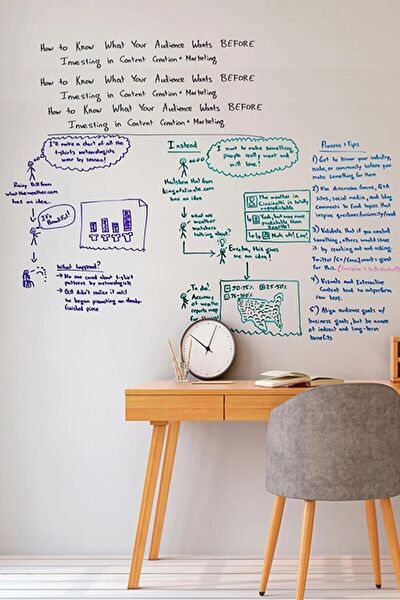 How to Know What Your Audience Wants BEFORE
Investing in Content Creation + Marketing
How to Know What Your Audience Wants BEFORE
Investing in Content Creation + Marketing
How to Know What Your Audience Wants BEFORE
Investing in Content Creation + Marketing
I'll make a chart of all the
t-shirts meteorologists
wear by season!
Rainy Bill from
whattheweather.com
has an idea...
It's Beautiful!
What happened?
→ No one cared about t-shirt
patterns by meteorologists
→ Bill didn't notice it until
he began promoting an
finished piece
Instead
I want to make something
people really want and
will love!
Hailstone Hal from
has an idea
what are
weather
talking about?
The weather in
Cincinnati is totally
unpredictable
Eureka, this gives
me an idea!
To do:
Accuracy
of weather
reports map
50-75%
25-50%
75-100%
Process + Tips
1) Get to know your industry,
niche, or community before you
make something for them
2) Use discussion forums, Q&A
sites, social media, and blog
comments to find topics that
inspire questions/curiosity/need
3) Validate that if you created
something, others would share
it by reaching out and asking.
4) Visuals and Interactive
content tend to outperform
raw text.
5) Align audience goals w/
business goals, but be aware
of indirect and long-term
benefits